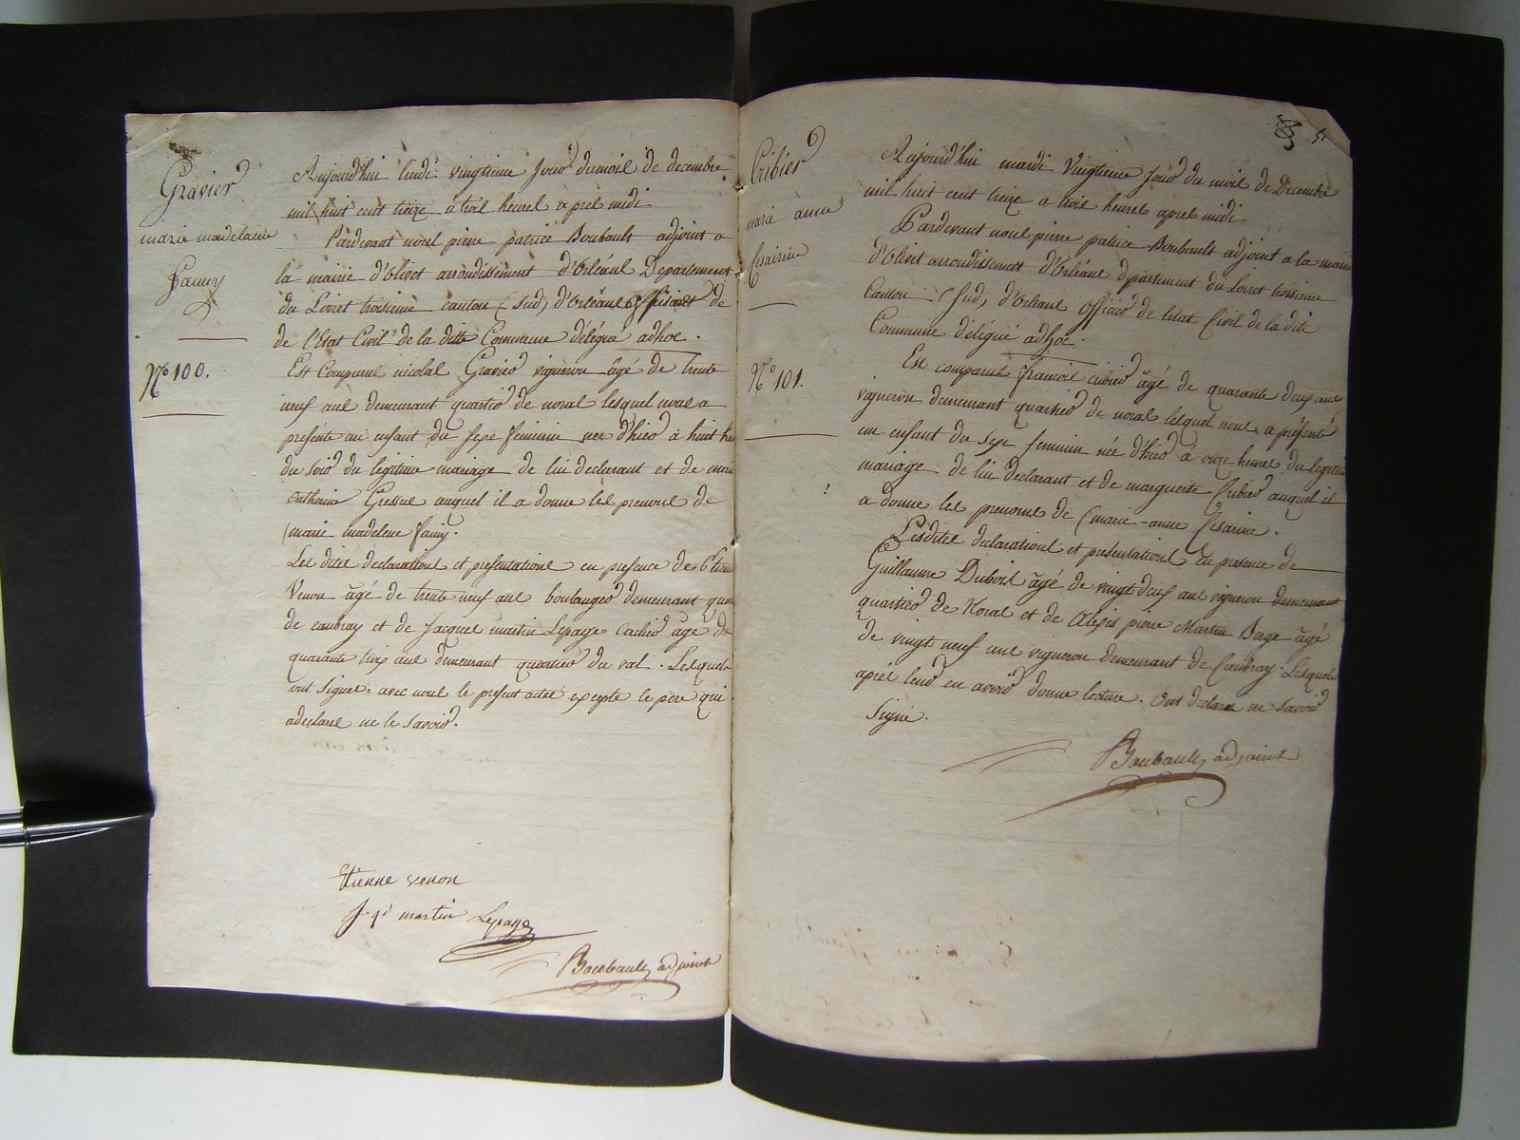 Gravier
marie madelaine
Fanny
N° 100.
Aujourd'hui lundi vingtieme jour du mois de decembre
mil huit cent treize a trois heures après midi
Pardevant nous pierre patrice Boubault adjoint a
la mairie d'Olivet arrondissement d'Orléans Departement
du Loiret troisieme canton (sud) d'Orléans officier de
de l'Etat Civil de la ditte Commune délégué adhoc.
Est Comparus nicolas Gravier vigneron âgé de trente
neuf ans demeurant quartier de noras lesquel nous a
présenté un enfant du sexe feminin née d'hier à huit
du soir du légitime mariage de lui declarant et de
Catherine auquel il a donné les prenoms de
marie madelene fanny.
Les dites declarations et presentations en presence de
Venon âgé de trente neuf ans boulanger demeurant
de caubray et de Jacques martin Lepage âgé de
quarante trois ans demeurant quartier du val. Lesquels
ont signés avec nous le present acte excepté le père qui
a declaré ne le savoir.
Etienne venon
J.q. martin Lepage
Boubault adjoint
Cribier
marie anne
Césairine
N° 101.
Aujourd'hui mardi Vingtieme jour du mois de Décembre
mil huit cent treize a trois heures après midi
Pardevant nous pierre patrice Boubault adjoint a la mairie
d'Olivet arrondissement d'Orléans département du Loiret troisieme
Canton (sud) d'Orleans officier de letat Civil de la dite
Commune délégué adhoc.
Est comparus françois cribier âgé de quarante deux ans
vigneron demeurant quartier de noras lesquel nous a présenté
un enfant du sexe feminin née d'hier à onze heures du légitime
mariage de lui declarant et de marguerite Cribier auquel il
a donné les prenoms de marie-anne Césarine.
Lesdites declarations et présentations en presence de
Guillaume Dubois âgé de vingt deux ans vigneron demeurant
quartier de Noras et de Alexis pierre Martin Page âgé
de vingt neuf ans vigneron demeurant de Caubray. Lesquels
après leur en avoir donné lecture. Ont declaré ne savoir
signé.
Boubault adjoint